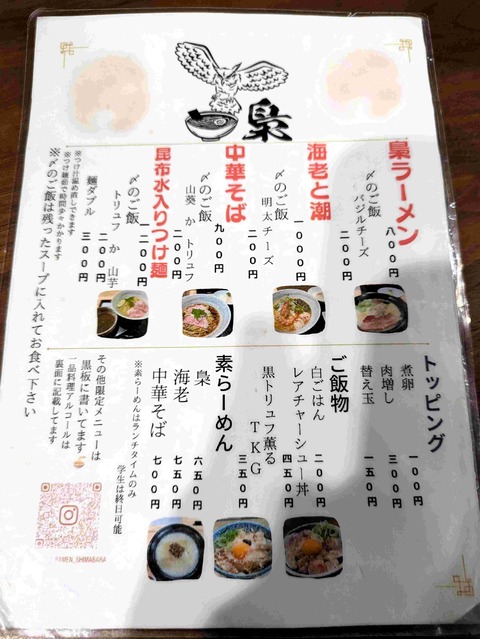 梟
梟ラーメン
八〇〇円
〆のご飯
バジルチーズ
二〇〇円
海老と潮
一〇〇〇円
〆のご飯
明太チーズ
二〇〇円
中華そば
九〇〇円
〆のご飯
山葵 か トリュフ
二〇〇円
昆布水入りつけ麺
一二〇〇円
〆のご飯
トリュフ か 山芋
二〇〇円
麺ダブル
三〇〇円
※つけ汁温め直しできます
※つけ麺茹で時間多々かかります
※〆のご飯は残ったスープに入れてお食べ下さい
トッピング
煮卵
一〇〇円
肉増し
三〇〇円
替え玉
一五〇円
ご飯物
白ごはん
二〇〇円
レアチャーシュー丼
四五〇円
黒トリュフ薫る
TKG
三五〇円
素らーめん
梟
六五〇円
海老
七五〇円
中華そば
七〇〇円
※素らーめんはランチタイムのみ
学生は終日可能
その他限定メニューは
黒板に書いてます
一品料理アルコールは
裏面に記載してます